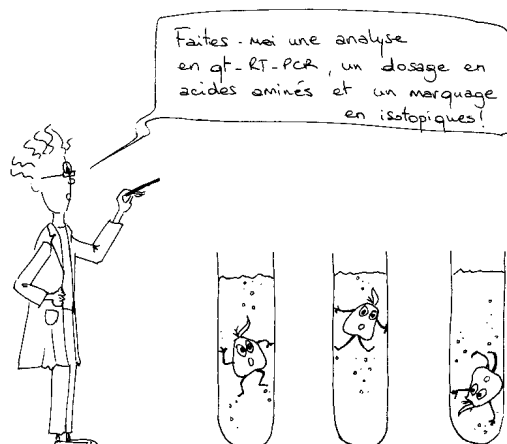 Faites-moi une analyse
en qt-RT-PCR, un dosage en
acides aminés et un marquage
en isotopiques!